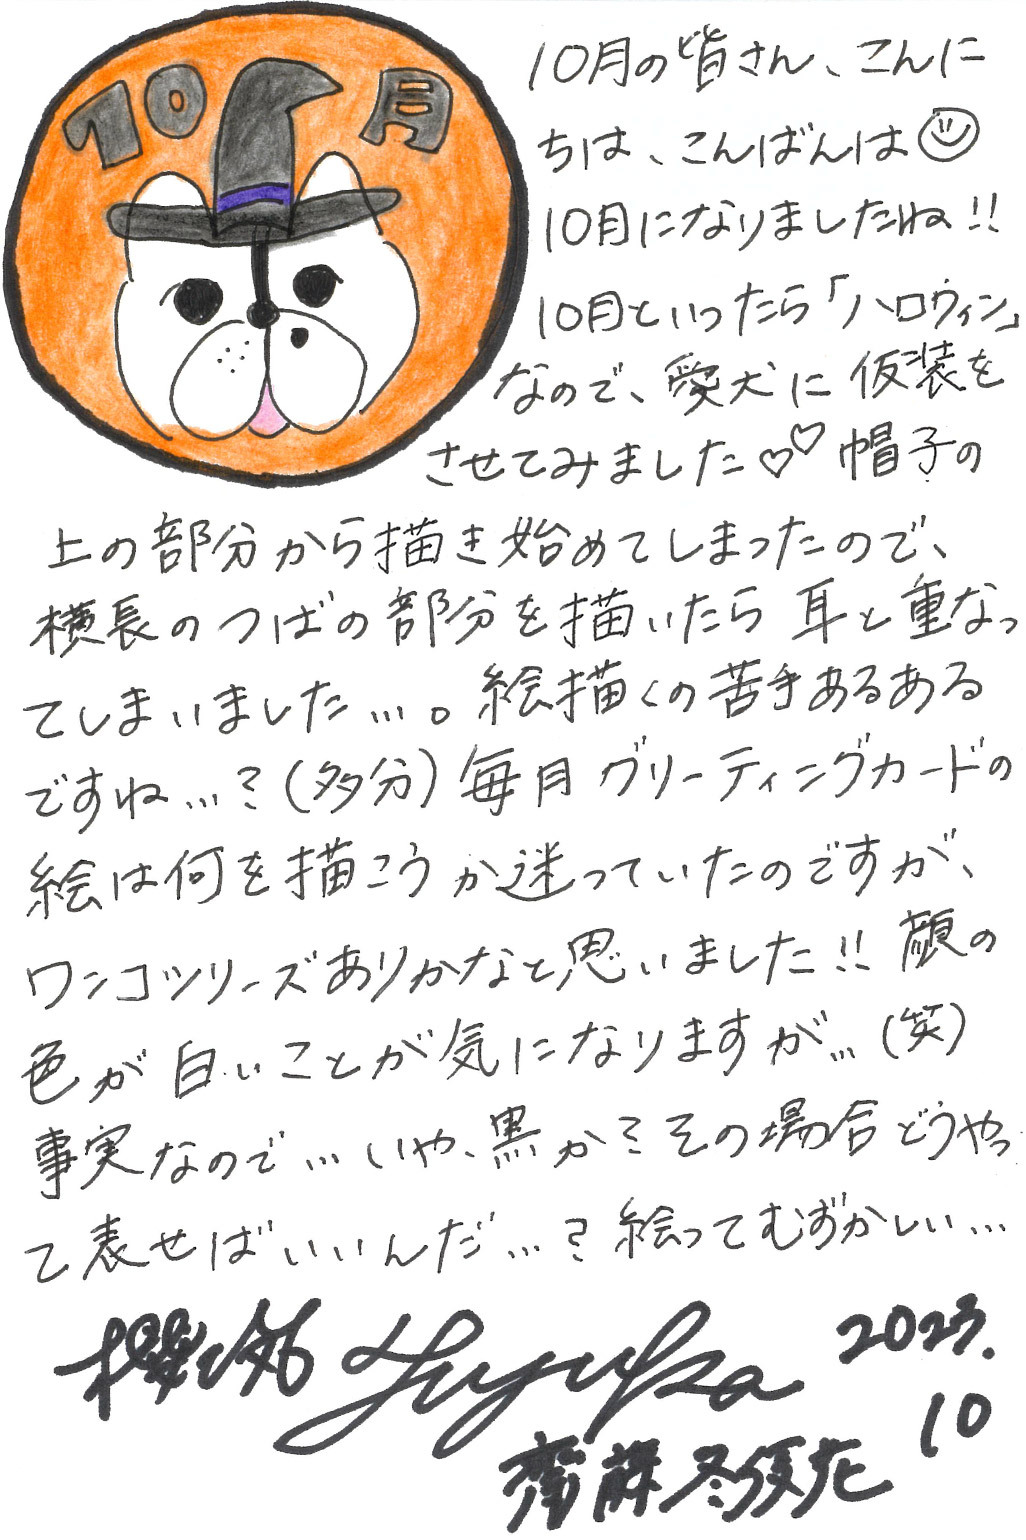 10月
10月の皆さん、こんに
ちは、こんばんは
10月になりましたね!!
10月といったら「ハロウィン」
なので、愛犬に仮装を
させてみました♡♡ 帽子の
上の部分から描き始めてしまったので、
横長のつばの部分を描いたら耳と重なっ
てしまいました…。絵描くの苦手あるある
ですね…?(多分)毎月グリーティングカードの
絵は何を描こうか迷っていたのですが、
ワンコシリーズありかなと思いました!!顔の
色が白いことが気になりますが…(笑)
事実なので…いや、黒か?その場合どうやっ
て表せばいいんだ…?絵ってむずかしい…
Yuyuka
2023.
10
齊藤冬優花